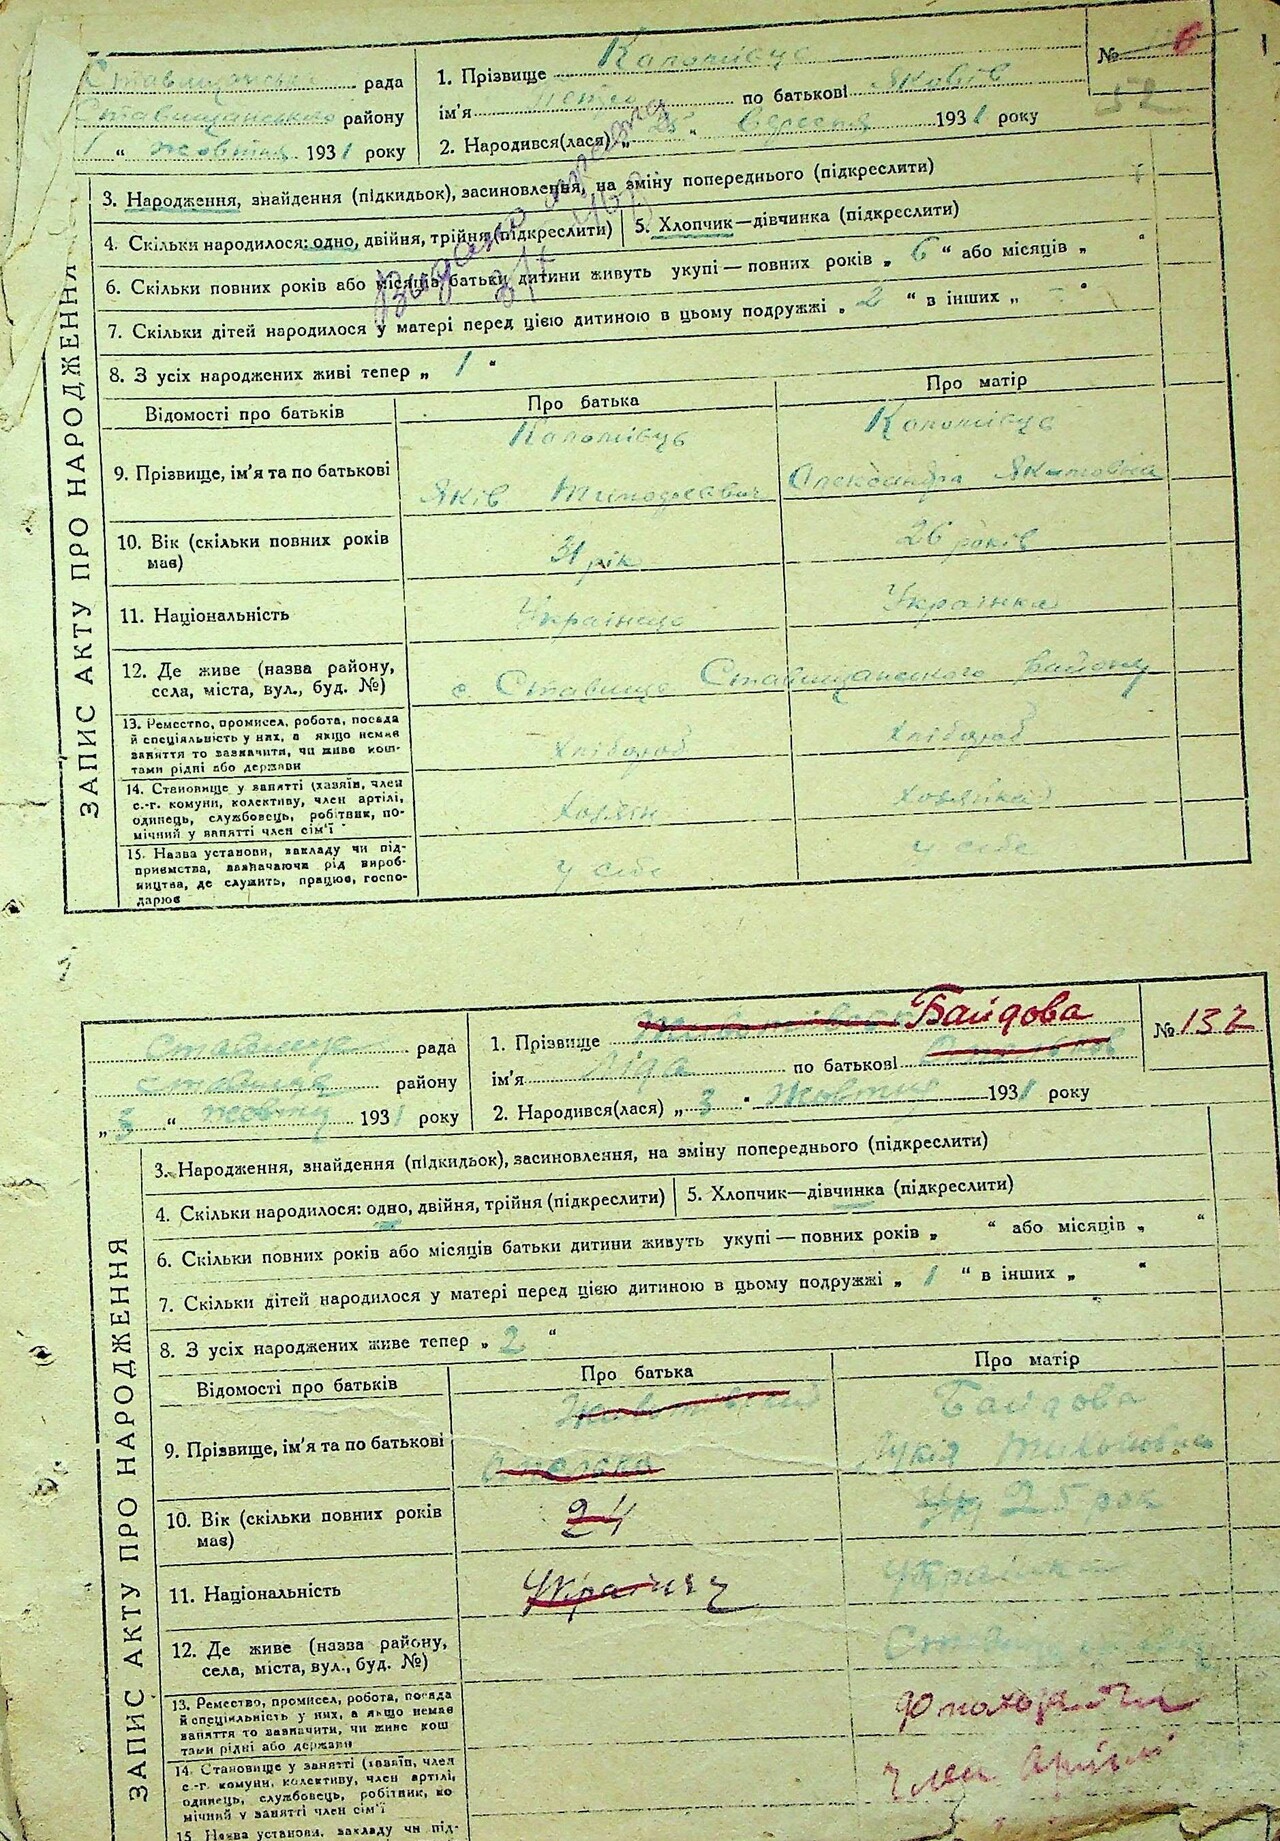 Ставищанська рада
Ставищанського району
1 " жовтня 1931 року
1. Прізвище Коломієць
ім'я Петро по батькові Яковів
2. Народився(лася) „ 25 " вересня 1931 року
№ 6
52
ЗАПИС АКТУ ПРО НАРОДЖЕННЯ
3. Народження, знайдення (підкидьок), засиновлення, на зміну попереднього (підкреслити)
4. Скільки народилося: одно, двійня, трійня (підкреслити) 5. Хлопчик—дівчинка (підкреслити)
6. Скільки повних років або місяців батьки дитини живуть укупі — повних років „ 6 " або місяців „ "
7. Скільки дітей народилося у матері перед цією дитиною в цьому подружжі „ 2 " в інших „ — "
8. З усіх народжених живі тепер „ 1 "
Видано
Відомості про батьків Про батька Про матір
9. Прізвище, ім'я та по батькові
Коломієць Коломієць
Яків Тимофеевич Олександра
10. Вік (скільки повних років має) 31 рік 26 років
11. Національність Українець Українка
12. Де живе (назва району, села, міста, вул., буд. №) с. Ставище Ставищанського району
13. Ремество, промисел, робота, посада
й спеціяльність у них, а якщо немає
заняття то зазначити, чи живе кош-
тами рідні або держави
Хлібороб Хлібороб
14. Становище у занятті (хазяїн, член
с.-г. комуни, колективу, член артілі,
одинець, службовець, робітник, по-
мічний у занятті член сім'ї
Хозяїн Хозяйка
15. Назва установи, закладу чи під-
приємства, зазначаючи рід вироб-
ництва, де служить, працює, госпо-
дарює
у себе у себе
Ставище рада
Ставище району
„ 3 " жовтня 1931 року
1. Прізвище Байдова
ім'я Ліда по батькові
2. Народився(лася) „ 3 " Жовтня 1931 року
№ 132
ЗАПИС АКТУ ПРО НАРОДЖЕННЯ
3. Народження, знайдення (підкидьок), засиновлення, на зміну попереднього (підкреслити)
4. Скільки народилося: одно, двійня, трійня (підкреслити) 5. Хлопчик—дівчинка (підкреслити)
6. Скільки повних років або місяців батьки дитини живуть укупі — повних років „ " або місяців „ "
7. Скільки дітей народилося у матері перед цією дитиною в цьому подружжі „ 1 " в інших „ "
8. З усіх народжених живе тепер „ 2 "
Відомості про батьків Про батька Про матір
9. Прізвище, ім'я та по батькові
Байдова
10. Вік (скільки повних років має) 24 25 рок
11. Національність Українец Українка
12. Де живе (назва району, села, міста, вул., буд. №)
13. Ремество, промисел, робота, посада
й спеціяльність у них, а якщо немає
заняття то зазначити, чи живе кош
тами рідні або держави
14. Становище у занятті (хазяїн, член
с.-г. комуни, колективу, член артілі,
одинець, службовець, робітник, по
мічний у занятті член сім'ї
Член Артілі
15. Назва установи, закладу чи під-